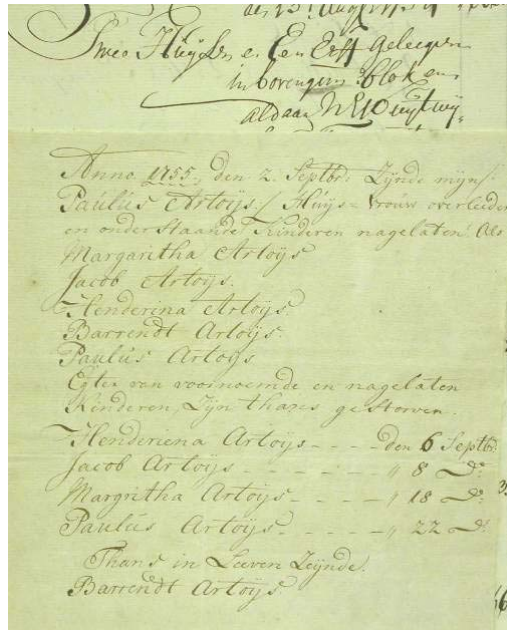 Twee Huysen en Een Erff geleegen
in bovengem: blok en
aldaar
Anno 1755. den 2. Septbr. Zijnde mijn /:
Paulus Artoijs :/ Huijs=Vrouw overleiden
en onderstaande Kinderen nagelaten Als
Margaritha Artoijs
Jacob Artoijs.
Henderina Artoijs.
Barrendt Artoijs.
Paulus Artoijs
Egter van voornoemde en nagelaten
Kinderen, Zijn thans gestorven.
Henderiena Artoijs - - - - den 6 Septbr.
Jacob Artoijs - - - - - - - „ 8 do.
Margritha Artoijs - - - - - „ 18 do.
Paulus Artoijs - - - - - - „ 22 do.
Thans in Leeven Zijnde.
Barrendt Artoijs.